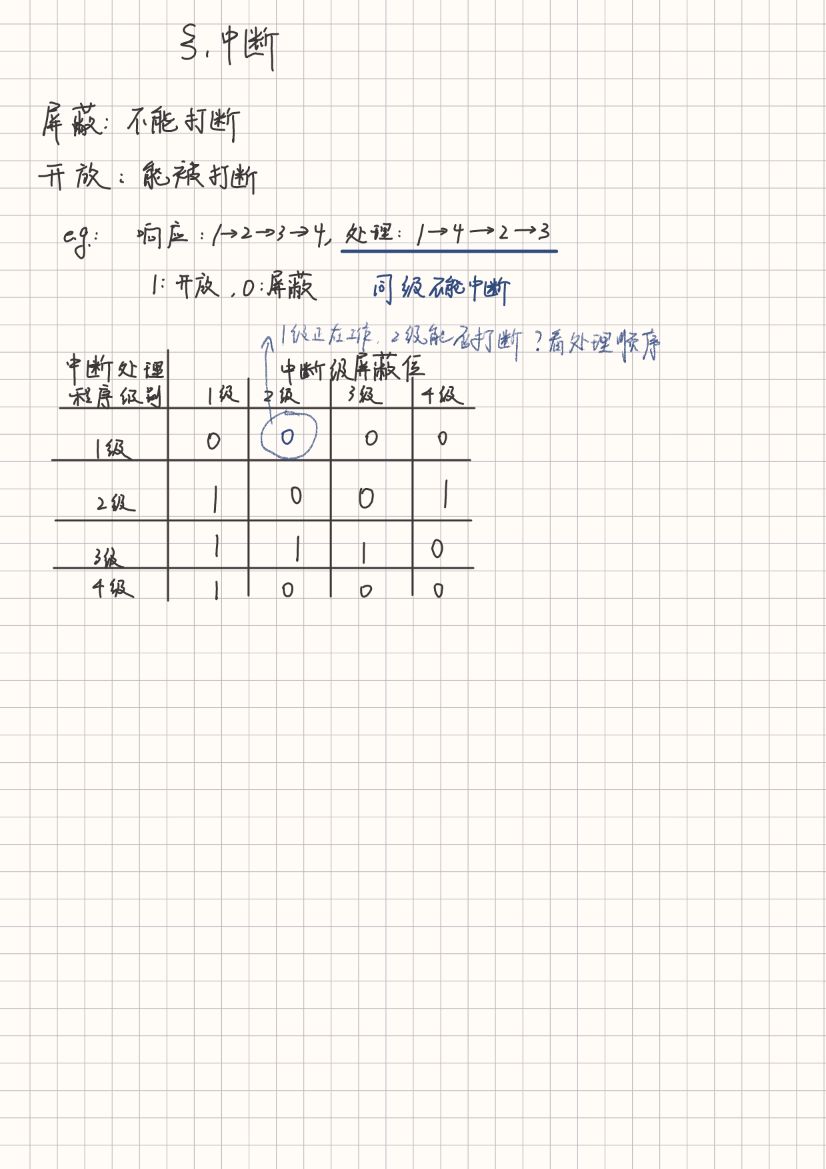 §. 中断
屏蔽: 不能打断
开放: 能被打断
e.g.: 响应: 1→2→3→4, 处理: 1→4→2→3
1: 开放, 0: 屏蔽 同级不能中断
1级正在工作, 2级能否打断? 看处理顺序
中断处理 中断级屏蔽位
程序级别 1级 2级 3级 4级
1级 0 0 0 0
2级 1 0 0 1
3级 1 1 1 0
4级 1 0 0 0